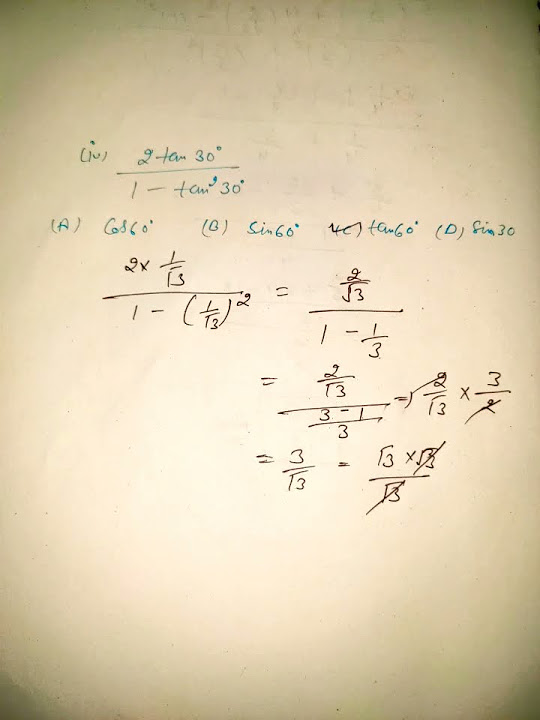 (iv) 2 tan 30° / 1 - tan² 30°
(A) Cos 60° (B) Sin 60° (C) tan 60° (D) Sin 30
2 × 1/√3 / 1 - (1/√3)² = 2/√3 / 1 - 1/3
= 2/√3 / 3 - 1/3 = 2/√3 × 3/2
= 3/√3 = √3 × √3 / √3